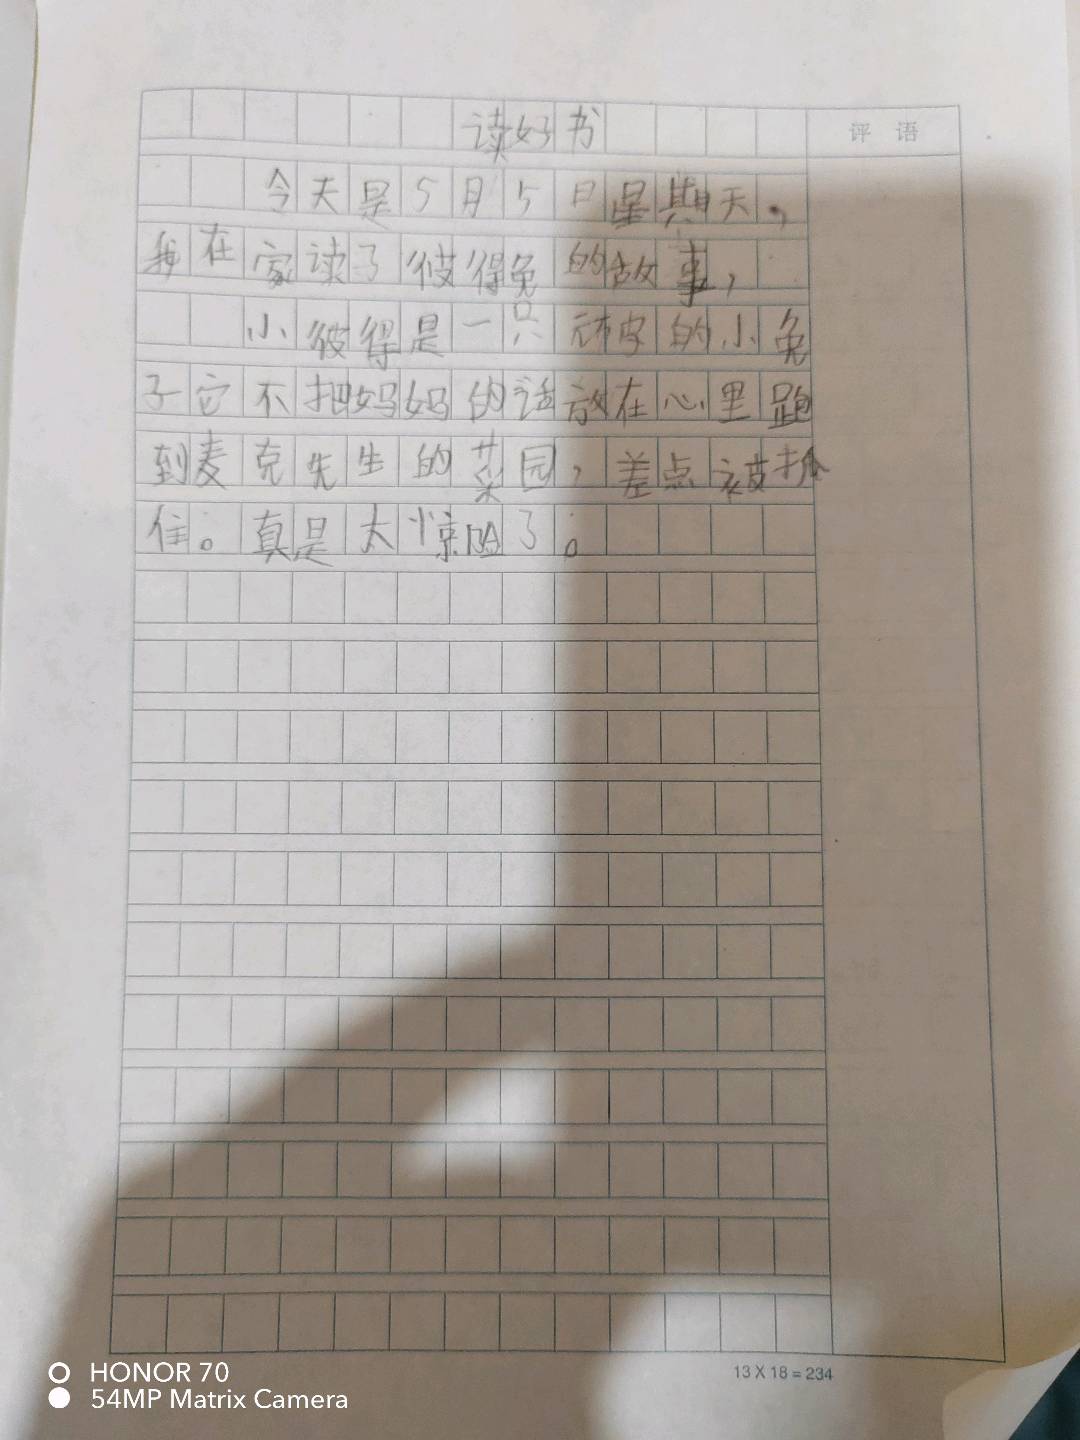 读好书
评 语
今天是5月5日星期天，
我在家读了彼得兔的故事，
小彼得是一只顽皮的小兔
子它不把妈妈的话放在心里跑
到麦克先生的菜园，差点被抓
住。真是太惊险了。
13 X 18 = 234
HONOR 70
54MP Matrix Camera